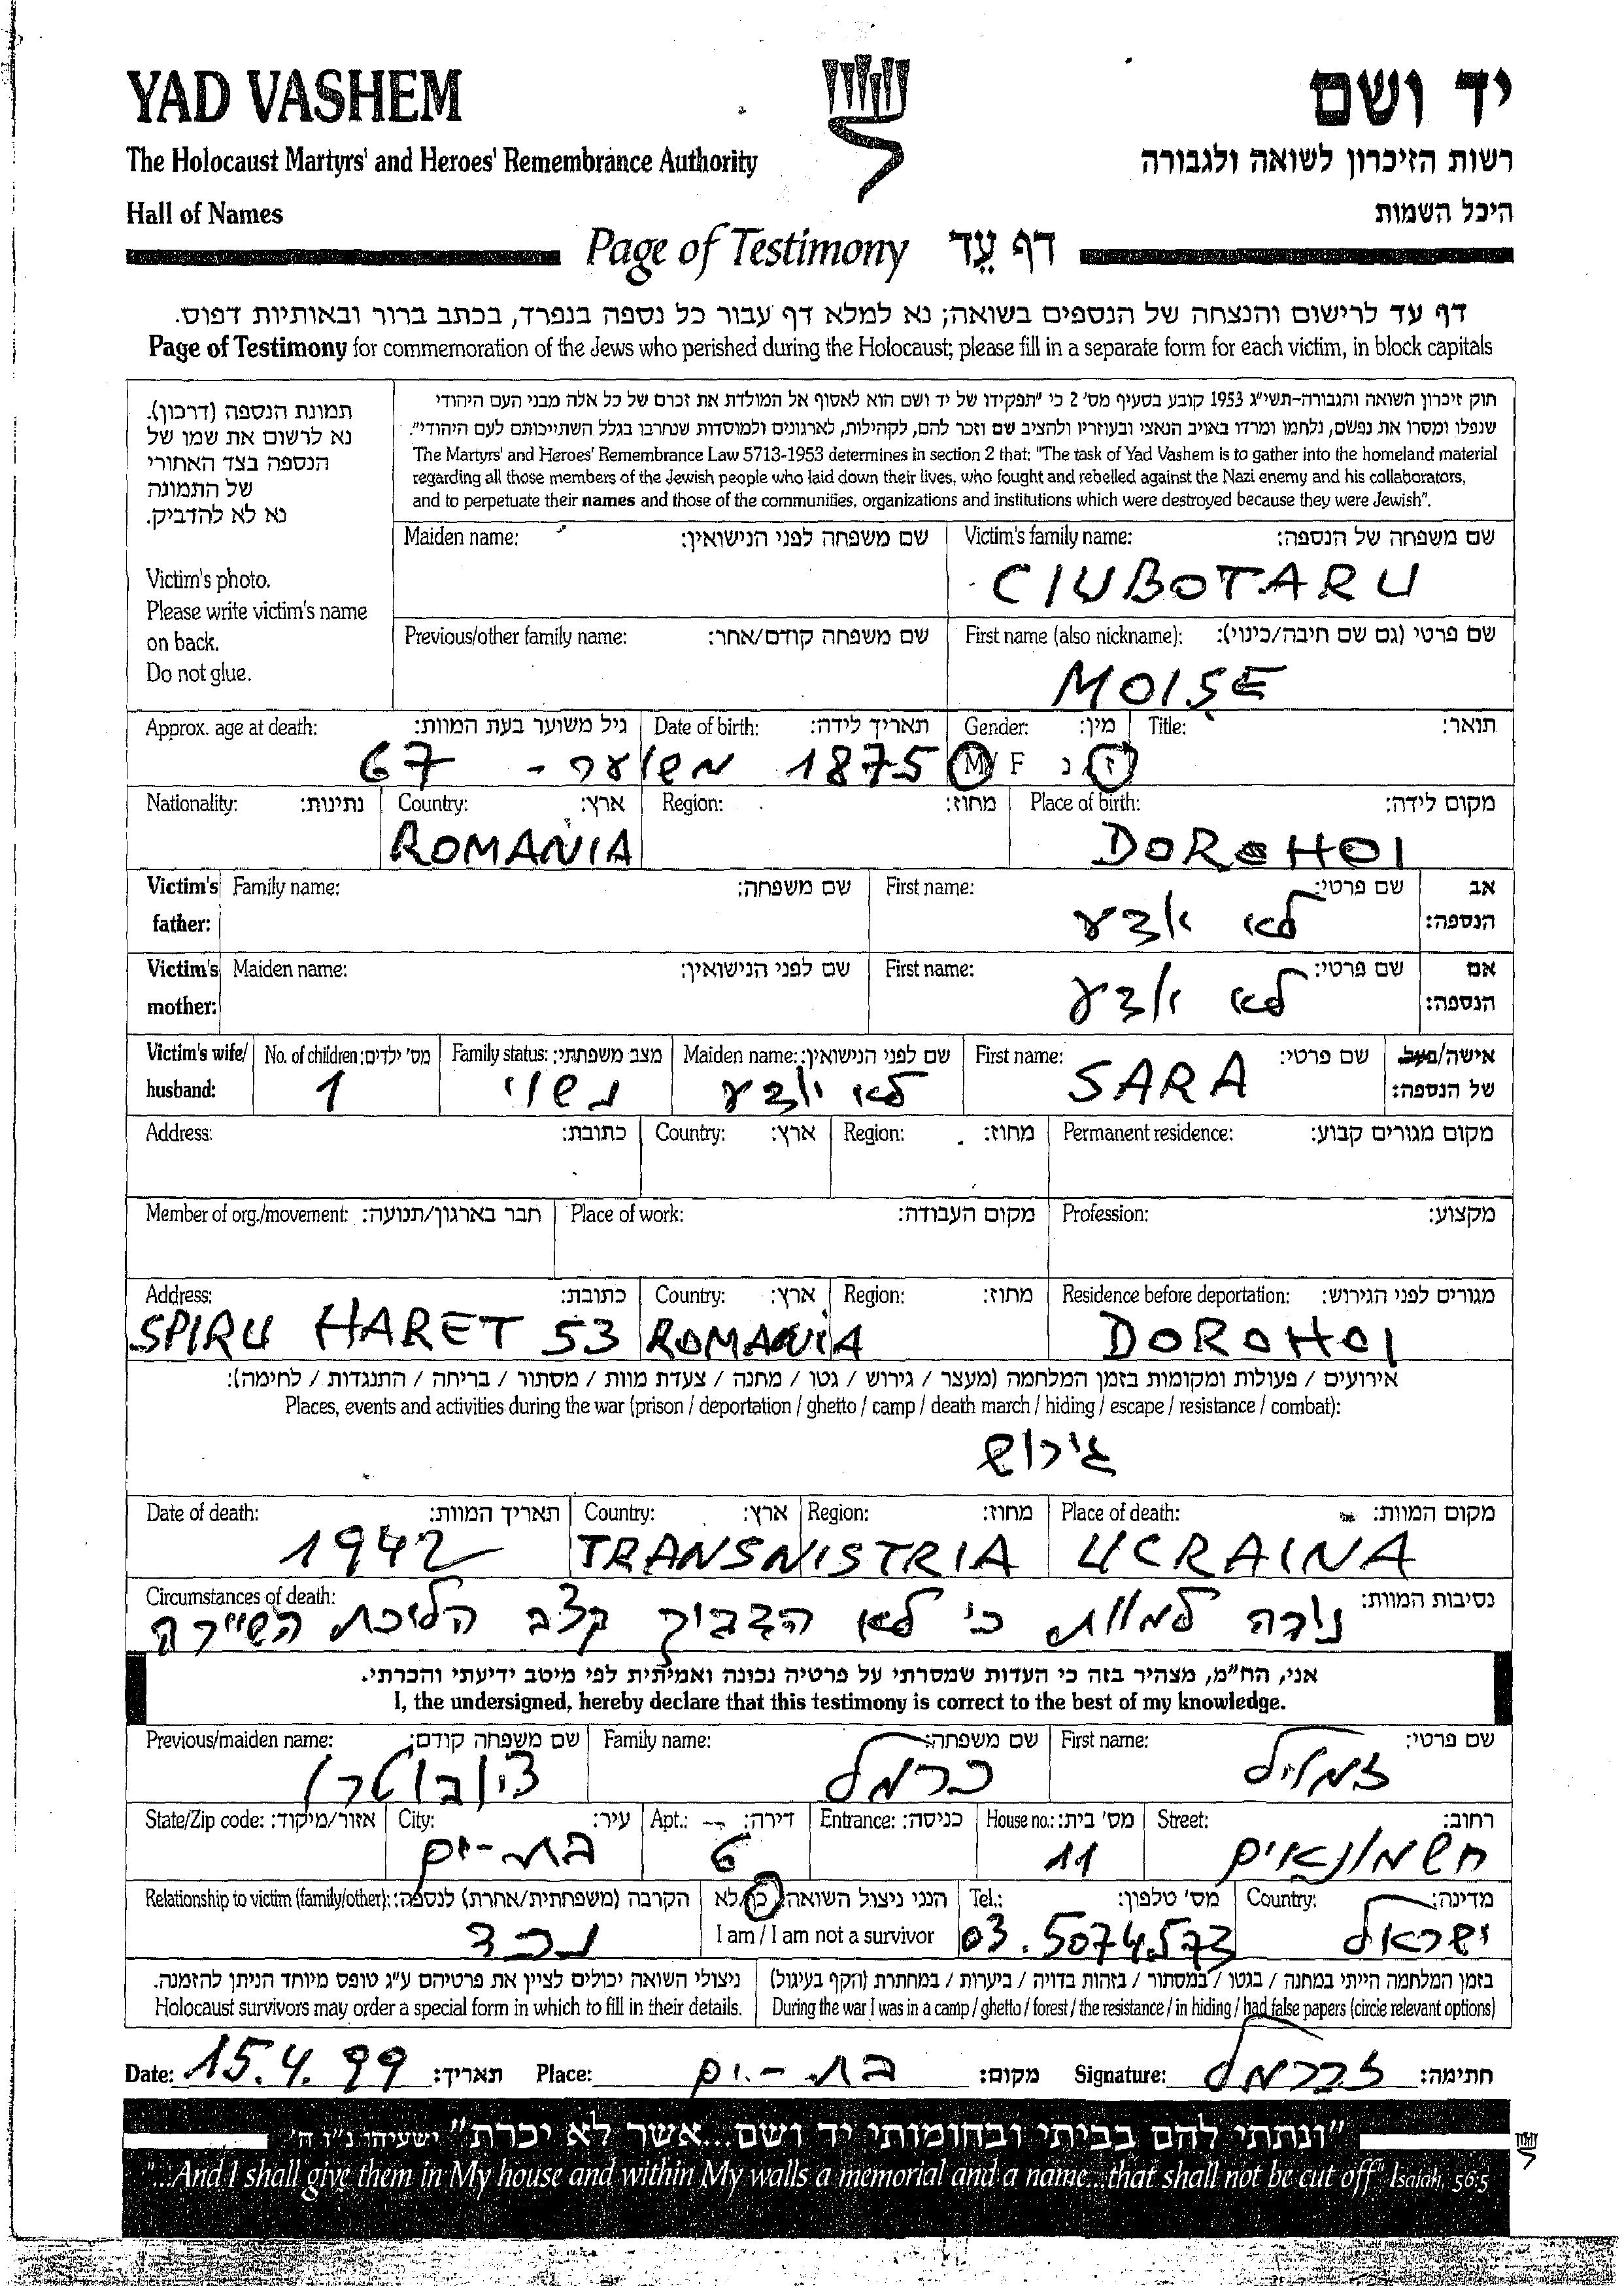 YAD VASHEM
יד ושם
The Holocaust Martyrs' and Heroes' Remembrance Authority
רשות הזיכרון לשואה ולגבורה
Hall of Names
היכל השמות
Page of Testimony דף עֵד
דף עד לרישום והנצחה של הנספים בשואה; נא למלא דף עבור כל נספה בנפרד, בכתב ברור ובאותיות דפוס.
Page of Testimony for commemoration of the Jews who perished during the Holocaust; please fill in a separate form for each victim, in block capitals
תמונת הנספה (דרכון).
נא לרשום את שמו של
הנספה בצד האחורי
של התמונה
נא לא להדביק.
Victim's photo.
Please write victim's name
on back.
Do not glue.
חוק זיכרון השואה והגבורה-תשי"ג 1953 קובע בסעיף מס' 2 כי "תפקידו של יד ושם הוא לאסוף אל המולדת את זכרם של כל אלה מבני העם היהודי
שנפלו ומסרו את נפשם, נלחמו ומרדו באויב הנאצי ובעוזריו ולהציב שם וזכר להם, לקהילות, לארגונים ולמוסדות שנחרבו בגלל השתייכותם לעם היהודי".
The Martyrs' and Heroes' Remembrance Law 5713-1953 determines in section 2 that: "The task of Yad Vashem is to gather into the homeland material
regarding all those members of the Jewish people who laid down their lives, who fought and rebelled against the Nazi enemy and his collaborators,
and to perpetuate their names and those of the communities, organizations and institutions which were destroyed because they were Jewish".
Maiden name: שם משפחה לפני הנישואין:
Victim's family name: שם משפחה של הנספה:
CIUBOTARU
Previous/other family name: שם משפחה קודם/אחר:
First name (also nickname): שם פרטי (גם שם חיבה/כינוי):
MOIȘE
Approx. age at death: גיל משוער בעת המוות:
Date of birth: תאריך לידה:
Gender: מין:
Title: תואר:
67
1875 משוער -
M/ F ז/ נ
Nationality: נתינות:
Country: ארץ:
Region: מחוז:
Place of birth: מקום לידה:
ROMANIA
DOROHOI
Victim's father: Family name: שם משפחה:
First name: שם פרטי: אב הנספה:
לא יודע
Victim's mother: Maiden name: שם לפני הנישואין:
First name: שם פרטי: אם הנספה:
לא יודע
Victim's wife/ husband:
No. of children: מס' ילדים:
Family status: מצב משפחתי:
Maiden name: שם לפני הנישואין:
First name: שם פרטי:
אישה/בעל של הנספה:
1
נשוי
לא יודע
SARA
Address: כתובת:
Country: ארץ:
Region: מחוז:
Permanent residence: מקום מגורים קבוע:
Member of org./movement: חבר בארגון/תנועה:
Place of work: מקום העבודה:
Profession: מקצוע:
Address: כתובת:
Country: ארץ:
Region: מחוז:
Residence before deportation: מגורים לפני הגירוש:
SPIRU HARET 53
ROMANIA
DOROHOI
אירועים / פעולות ומקומות בזמן המלחמה (מעצר / גירוש / גטו / מחנה / צעדת מוות / מסתור / בריחה / התנגדות / לחימה):
Places, events and activities during the war (prison / deportation / ghetto / camp / death march / hiding / escape / resistance / combat):
גירוש
Date of death: תאריך המוות:
Country: ארץ:
Region: מחוז:
Place of death: מקום המוות:
1942
TRANSNISTRIA
UCRAINA
Circumstances of death: נסיבות המוות:
נורה למוות כי לא הדביק קצב הליכת השיירה
אני, הח"מ, מצהיר בזה כי העדות שמסרתי על פרטיה נכונה ואמיתית לפי מיטב ידיעתי והכרתי.
I, the undersigned, hereby declare that this testimony is correct to the best of my knowledge.
Previous/maiden name: שם משפחה קודם:
Family name: שם משפחה:
First name: שם פרטי:
ציובוטרו
כרמל
State/Zip code: אזור/מיקוד:
City: עיר:
Apt.: דירה:
Entrance: כניסה:
House no.: מס' בית:
Street: רחוב:
בת-ים
6
11
חשמונאים
Relationship to victim (family/other): הקרבה (משפחתית/אחרת) לנספה:
הנני ניצול השואה: כן/לא
I am / I am not a survivor
Tel.: מס' טלפון:
Country: מדינה:
נכד
03.5074573
ישראל
ניצולי השואה יכולים לציין את פרטיהם ע"ג טופס מיוחד הניתן להזמנה.
Holocaust survivors may order a special form in which to fill in their details.
בזמן המלחמה הייתי במחנה / בגטו / במסתור / בזהות בדויה / ביערות / במחתרת (הקף בעיגול)
During the war I was in a camp / ghetto / forest / the resistance / in hiding / had false papers (circle relevant options)
Date: 15.4.99 תאריך:
Place: בת-ים מקום:
Signature: חתימה:
"ונתתי להם בביתי ובחומותי יד ושם...אשר לא יכרת" ישעיהו נ"ו ה'
"...And I shall give them in My house and within My walls a memorial and a name...that shall not be cut off" Isaiah, 56:5